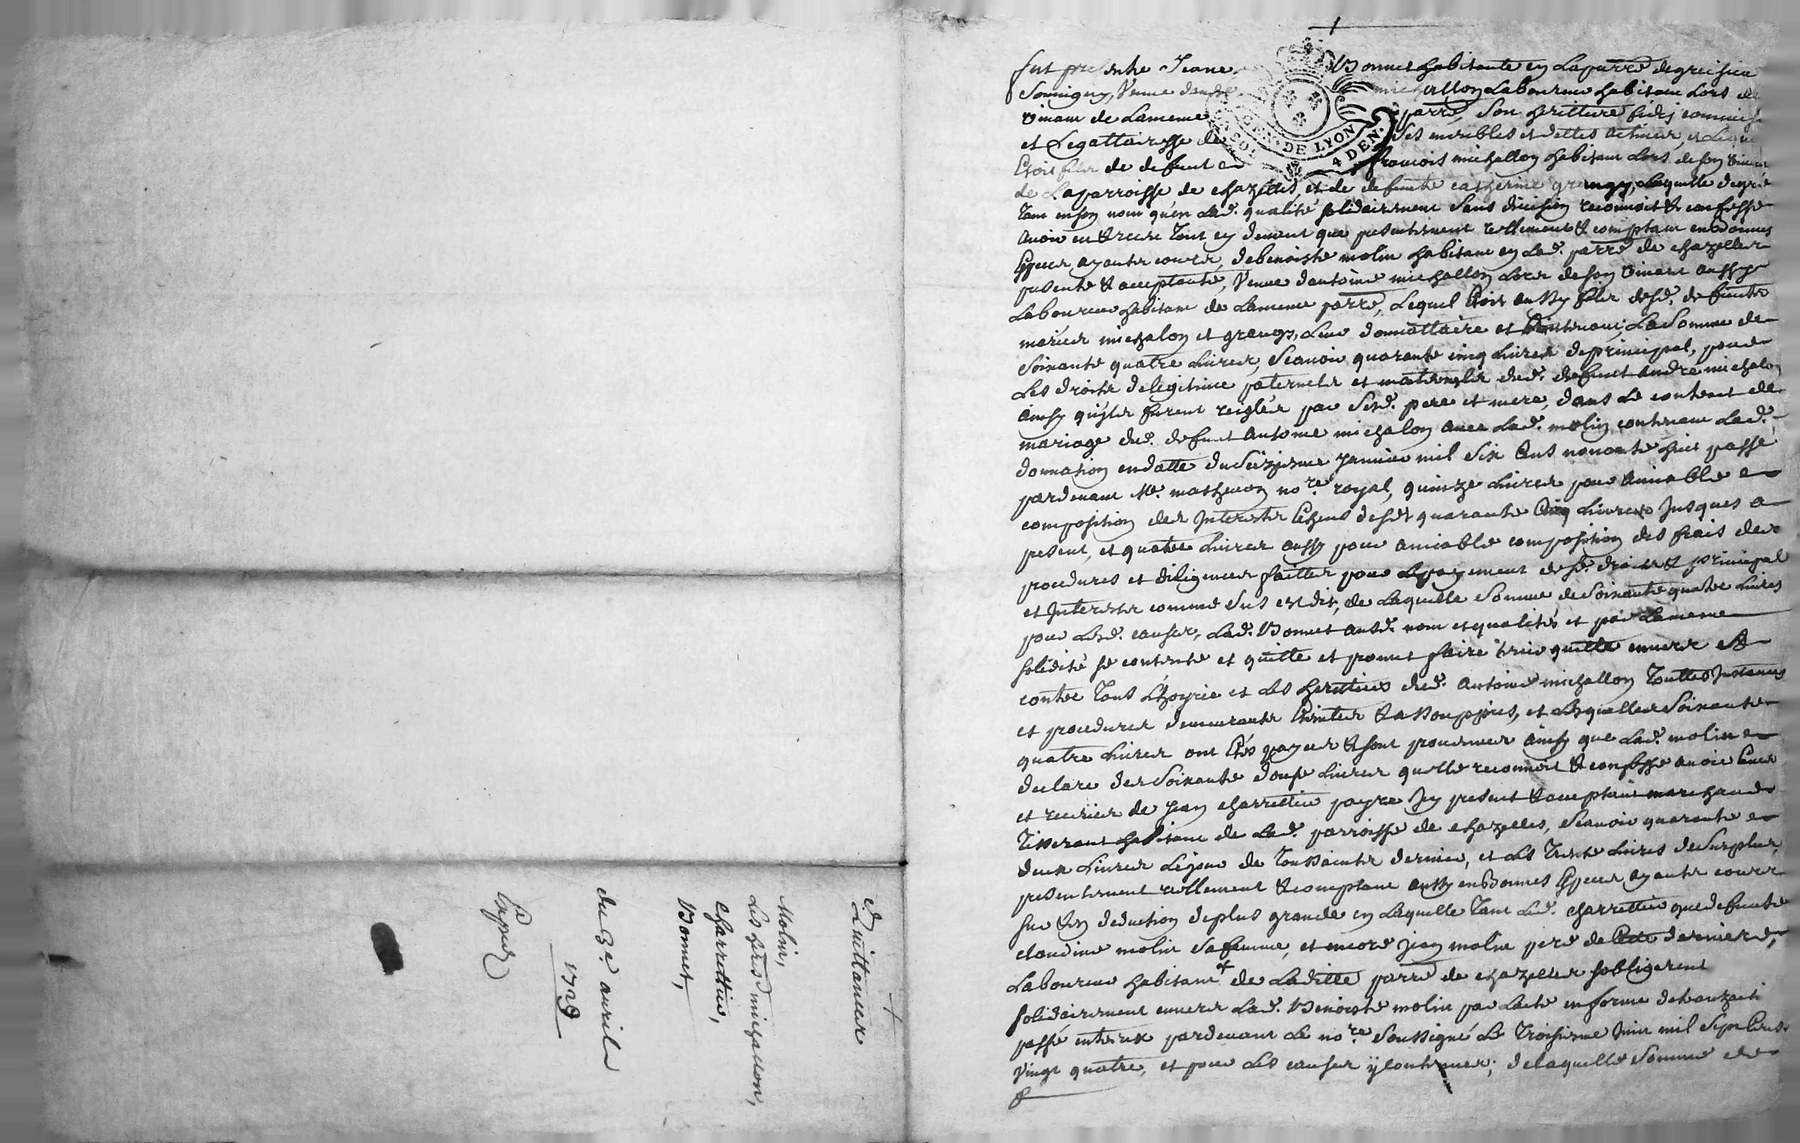 fut presente Jeane Bonnet habitante en la parre de greisieu
Souvigny, veuve d'andré michallon laboureur habitant lors de
vivant de la meme parre, son heritiere fidej commise
et legattairesse de ses meubles et dettes actives, et lequel
étoit filz de defunt françois michallon habitant lors de son vivant
de la parroisse de chazelles, et de defunte catherine grangy, laquelle de gré
tant en son nom qu'en lad. qualité solidairement sans division reconnoit & confesse
avoir eu & receu tout en devant que presentement reellement & comptant en bonnes
especes ayants cours, de benoiste molin habitant en lad. parre de chazelles
presente & acceptante, veuve d'antoine michallon lors de son vivant aussy
laboureur habitant de la meme parre, lequel étoit aussy filz desd. defunts
mariez michalon et grangy, leur donnattaire et heritier, la somme de
soixante quatre livres, scavoir quarante cinq livres de principal, pour
les droits de legitime paternels et maternels dud. defunt andré michalon
ainsy qu'ilz furent reiglés par sesd. pere et mere, dans le contract de
mariage dud. defunt antoine michalon avec lad. molin, contenant lad.
donnation en datte du seizieme janvier mil six cents nonante huit passé
pardevant Me. mathevon nore. royal, quinze livres pour amiable
composition des interests échus desd. quarante cinq livres jusques a
present, et quatre livres aussy pour amiable composition des frais de
procedures et diligences faittes pour le payement desd. droits & principal
et interests comme sus est dit, de laquelle somme de soixante quatre livres
pour lesd. causes, lad. Bonnet ausd. nom et qualités et par la meme
solidité se contente et quitte et promet faire tenir quitte envers &
contre tous l'hoyrie et les heritiers dud. antoine michallon touttes instances
et procedures demeurants éteintes & assoupies, et lesquelles soixante
quatre livres ont étés payees & sont provenues ainsy que lad. molin
declare des soixante douze livres qu'elle reconnoit & confesse avoir eues
et receües de jean charretier payre icy present & acceptant marchand
tisserant habitant de lad. parroisse de chazelles, scavoir quarante
deux livres le jour de toussaints dernier, et les trente livres de surplus,
presentement reellement & comptant aussy en bonnes especes ayants cours
sur & en deduction de plus grande en laquelle tant led. charretier que defunte
claudine molin sa femme, et encore jean molin pere de cette derniere,
laboureur habitant de laditte parre de chazelles s'obligerent
solidairement envers lad. Benoiste molin par l'acte en forme de transact
passé entr'eux pardevant le nore. soussigné le troisieme juin mil sept cents
vingt quatre, et pour les causes y contenues; de laquelle somme de
Quittances
Molin,
Les hers michallon,
Charretier,
Bonnet,
du 3e. avril
1728
Exped
DE LYON
4 DEN.